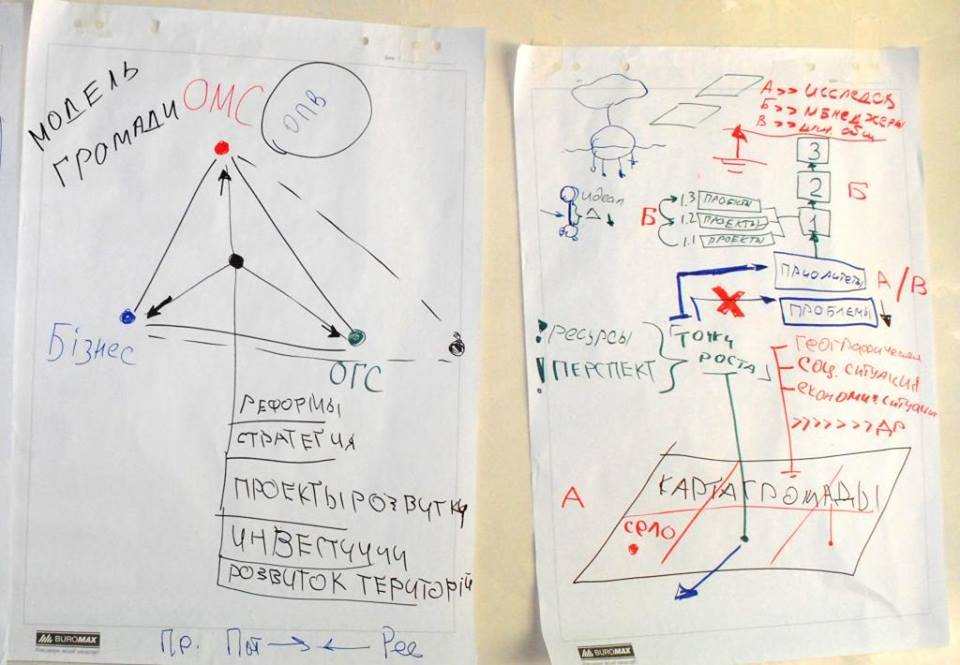 МОДЕЛЬ
ГРОМАДИ
ОМС
ОПВ
Бізнес
ОГС
РЕФОРМЫ
СТРАТЕГИЯ
ПРОЕКТЫ РОЗВИТКУ
ИНВЕСТИЧИИ
РОЗВИТОК ТЕРИТОРІЙ
Пр.
BUROMAX
А >> ИССЛЕДОВ
Б >> МЕНЕДЖЕРЫ
В >>
3
2
1
Б
идеал
Δ
Б
1.3 ПРОЕКТЫ
1.2 ПРОЕКТЫ
1.1 ПРОЕКТЫ
ПРИОРИТЕТЫ
А/В
ПРОБЛЕМЫ
! РЕСУРСЫ
! ПЕРСПЕКТ
РОСТА
СОЦ. СИТУАЦИЯ
>>>>>>> ДР
А
КАРТА ГРОМАДЫ
село
BUROMAX